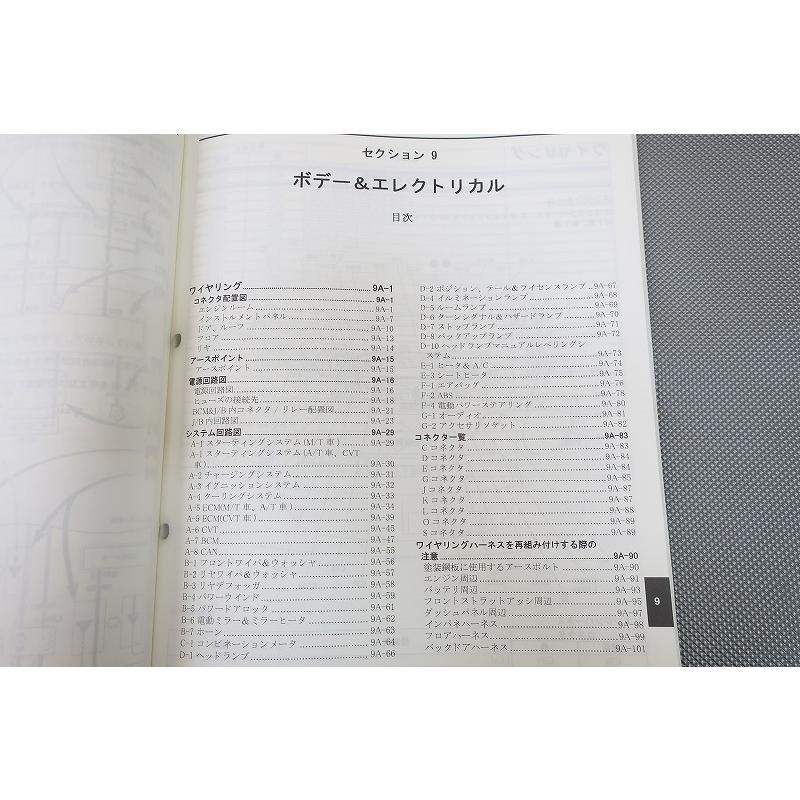 セクション 9
ボデー＆エレクトリカル
目次
ワイヤリング 9A-1
コネクタ配置図 9A-1
エンジンルーム 9A-1
インストルメントパネル 9A-7
ドア、ルーフ 9A-10
フロア 9A-12
リヤ 9A-14
アースポイント 9A-15
アースポイント 9A-15
電源回路図 9A-16
電源回路図 9A-16
ヒューズの接続先 9A-18
BCM&J/B内コネクタ / リレー配置図 9A-21
J/B内回路図 9A-23
システム回路図 9A-29
A-1 スターティングシステム(M/T 車) 9A-29
A-1 スターティングシステム(A/T 車、CVT
車) 9A-30
A-2 チャージングシステム 9A-31
A-3 イグニッションシステム 9A-32
A-4 クーリングシステム 9A-33
A-5 ECM(M/T車、A/T車) 9A-34
A-5 ECM(CVT車) 9A-39
A-6 CVT 9A-45
A-7 BCM 9A-47
A-8 CAN 9A-55
B-1 フロントワイパ＆ウォッシャ 9A-56
B-2 リヤワイパ＆ウォッシャ 9A-57
B-3 リヤデフォッガ 9A-58
B-4 パワーウインド 9A-59
B-5 パワードアロック 9A-61
B-6 電動ミラー＆ミラーヒータ 9A-62
B-7 ホーン 9A-63
C-1 コンビネーションメータ 9A-64
D-1 ヘッドランプ 9A-66
D-2 ポジション、テール＆ライセンスランプ 9A-67
D-4 イルミネーションランプ 9A-68
D-5 ルームランプ 9A-69
D-6 ターンシグナル＆ハザードランプ 9A-70
D-7 ストップランプ 9A-71
D-8 バックアップランプ 9A-72
D-10 ヘッドランプマニュアルレベリングシ
ステム 9A-73
E-1 ヒータ& A/C 9A-74
E-3 シートヒータ 9A-75
F-1 エアバッグ 9A-76
F-2 ABS 9A-78
F-4 電動パワーステアリング 9A-80
G-1 オーディオ 9A-81
G-2 アクセサリソケット 9A-82
コネクタ一覧 9A-83
C コネクタ 9A-83
D コネクタ 9A-84
E コネクタ 9A-84
G コネクタ 9A-85
J コネクタ 9A-87
K コネクタ 9A-87
L コネクタ 9A-88
O コネクタ 9A-89
S コネクタ 9A-89
ワイヤリングハーネスを再組み付けする際の
注意 9A-90
塗装鋼板に使用するアースボルト 9A-90
エンジン周辺 9A-91
バッテリ周辺 9A-93
フロントストラットアッシ周辺 9A-95
ダッシュパネル周辺 9A-97
インパネハーネス 9A-98
フロアハーネス 9A-99
バックドアハーネス 9A-101
9